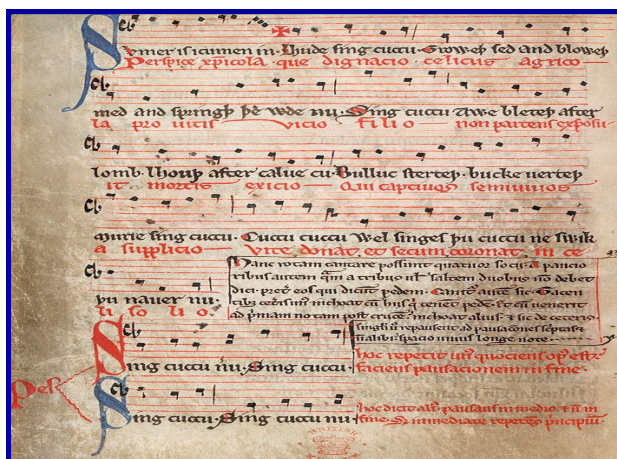 Svmer is icumen in. Lhude sing cuccu. Groweþ sed and bloweþ
Perspice xp̅icola. que dignacio celicus agrico
med and springþ þe wde nu. Sing cuccu Awe bleteþ after
la pro uitis vicio filio non parcens exposu
lomb. lhouþ after calue cu. Bulluc sterteþ. bucke uerteþ
it mortis exicio Qui captiuos semiuiuos
murie sing cuccu. Cuccu cuccu Wel singes þu cuccu ne swik
a supplicio Vite donat et secum coronat in ce
þu nauer nu.
li solio
Hanc rotam cantare possunt quatuor socij. A paucio
ribus autem a tribus uel saltem duobus non debet
dici. preter eos qui dicunt pedem. Canitur autem sic. Tacen
tibus ceteris unus inchoat cum hiis qui tenent pedem. Et cum uenerit
ad primam notam post crucem. inchoat alius. et sic de ceteris.
singuli repausent ad pausaciones scriptas
spacio unius longe note.
Pes
Sing cuccu nu. Sing cuccu.
hoc repetit unus quociens opus est.
faciens pausacionem in fine.
Sing cuccu. Sing cuccu nu
hoc dicit alius pausans in medio et non in
fine. Set inmediate repetens principium.